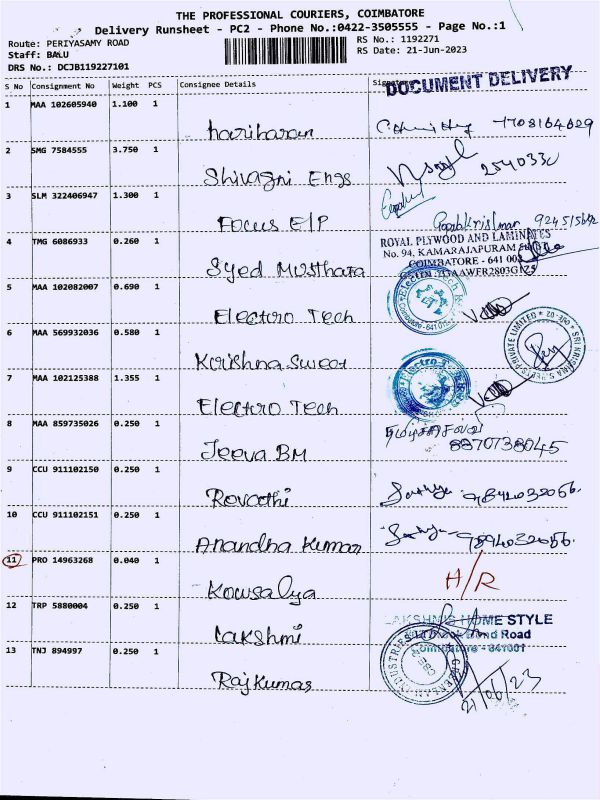 THE PROFESSIONAL COURIERS, COIMBATORE
Delivery Runsheet - PC2 - Phone No.:0422-3505555 - Page No.:1
Route: PERIYASAMY ROAD
RS No.: 1192271
Staff: BALU
RS Date: 21-Jun-2023
DRS No.: DCJB119227101
S No Consignment No Weight PCS Consignee Details Signature
DOCUMENT DELIVERY
1 MAA 102605940 1.100 1
hariharan 7708164629
2 SMG 7584555 3.750 1
Shivagni Engs 2540330
3 SLM 322406947 1.300 1
Focus E/P Gopalakrishnan
4 TMG 6086933 0.260 1
ROYAL PLYWOOD AND LAMINATES
No. 94, KAMARAJAPURAM
COIMBATORE - 641 002
Syed Musthara
5 MAA 102082007 0.690 1
Electro Tech
6 MAA 569932036 0.580 1
Krishna Sweet
SRI KRISHNA SWEETS PRIVATE LIMITED
7 MAA 102125388 1.355 1
Electro Tech
8 MAA 859735026 0.250 1
Jeeva BM 8870738045
9 CCU 911102150 0.250 1
Revathi Sathya 9894032056.
10 CCU 911102151 0.250 1
Anandha Kumar Sathya 9894032056.
11 PRO 14963268 0.040 1
Kowsalya H/R
12 TRP 5880004 0.250 1
LAKSHMIS HOME STYLE
Lakshmi Bond Road
Coimbatore - 641001
13 TNJ 894997 0.250 1
Raj Kumar
INDUSTRIES
CBE
21/06/23